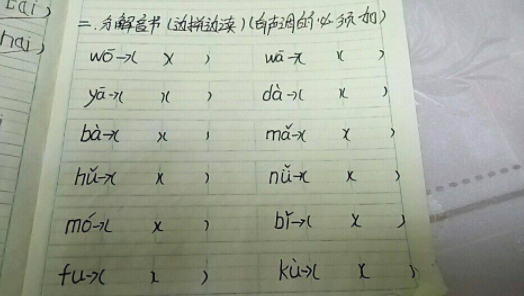 ɑi)
hɑi)
二.分解音节(边拼边读)(有声调的必须加)
wō→( )( ) wā→( )( )
yā→( )( ) dà→( )( )
bà→( )( ) mǎ→( )( )
hǔ→( )( ) nǚ→( )( )
mó→( )( ) bǐ→( )( )
fu→( )( ) kù→( )( )